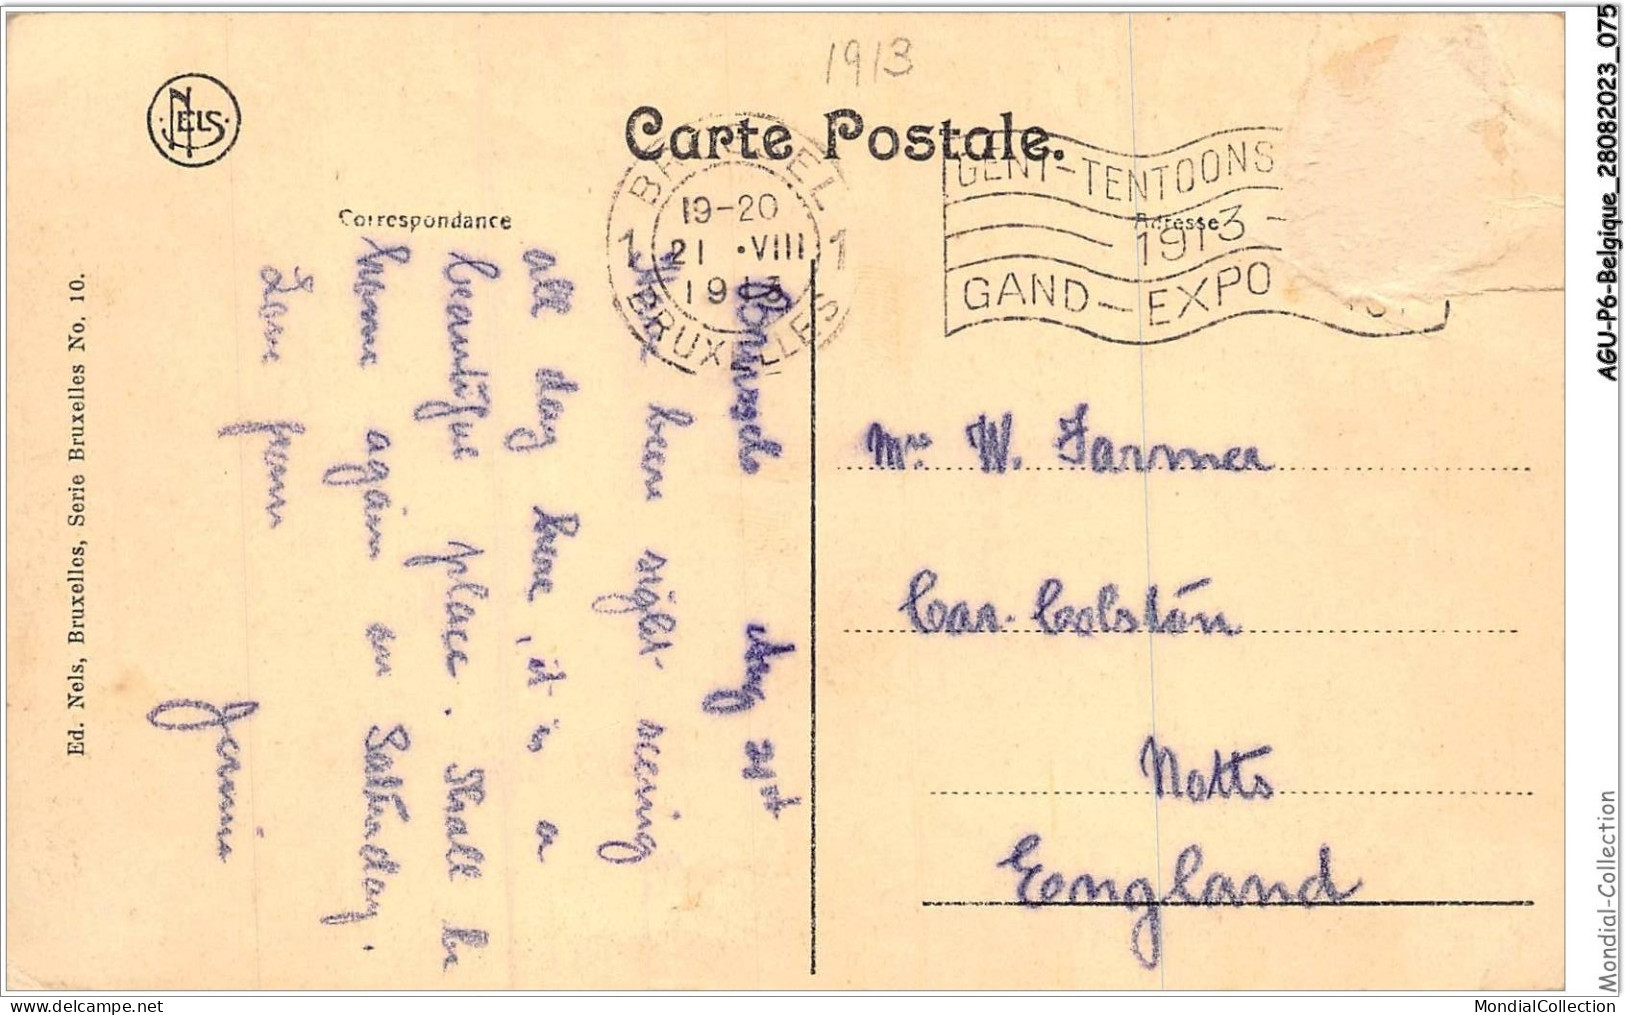 1913
NELS
Carte Postale.
Correspondance
Adresse
BRUSSEL
1 1
19-20
21 ·VIII
1913
BRUXELLES
GENT-TENTOONS
1913 -
GAND-EXPO
Brussels Aug 21st
been sight-seeing
all day here, it is a
beautiful place. Shall be
home again on Saturday.
Love from
Jennie
Mrs. W. Farmer
Car-Colston
Notts
England
Ed. Nels, Bruxelles, Serie Bruxelles No. 10.
AGU-P6-Belgique_28082023_075
Mondial-Collection
MondialCollection
delcampe.net